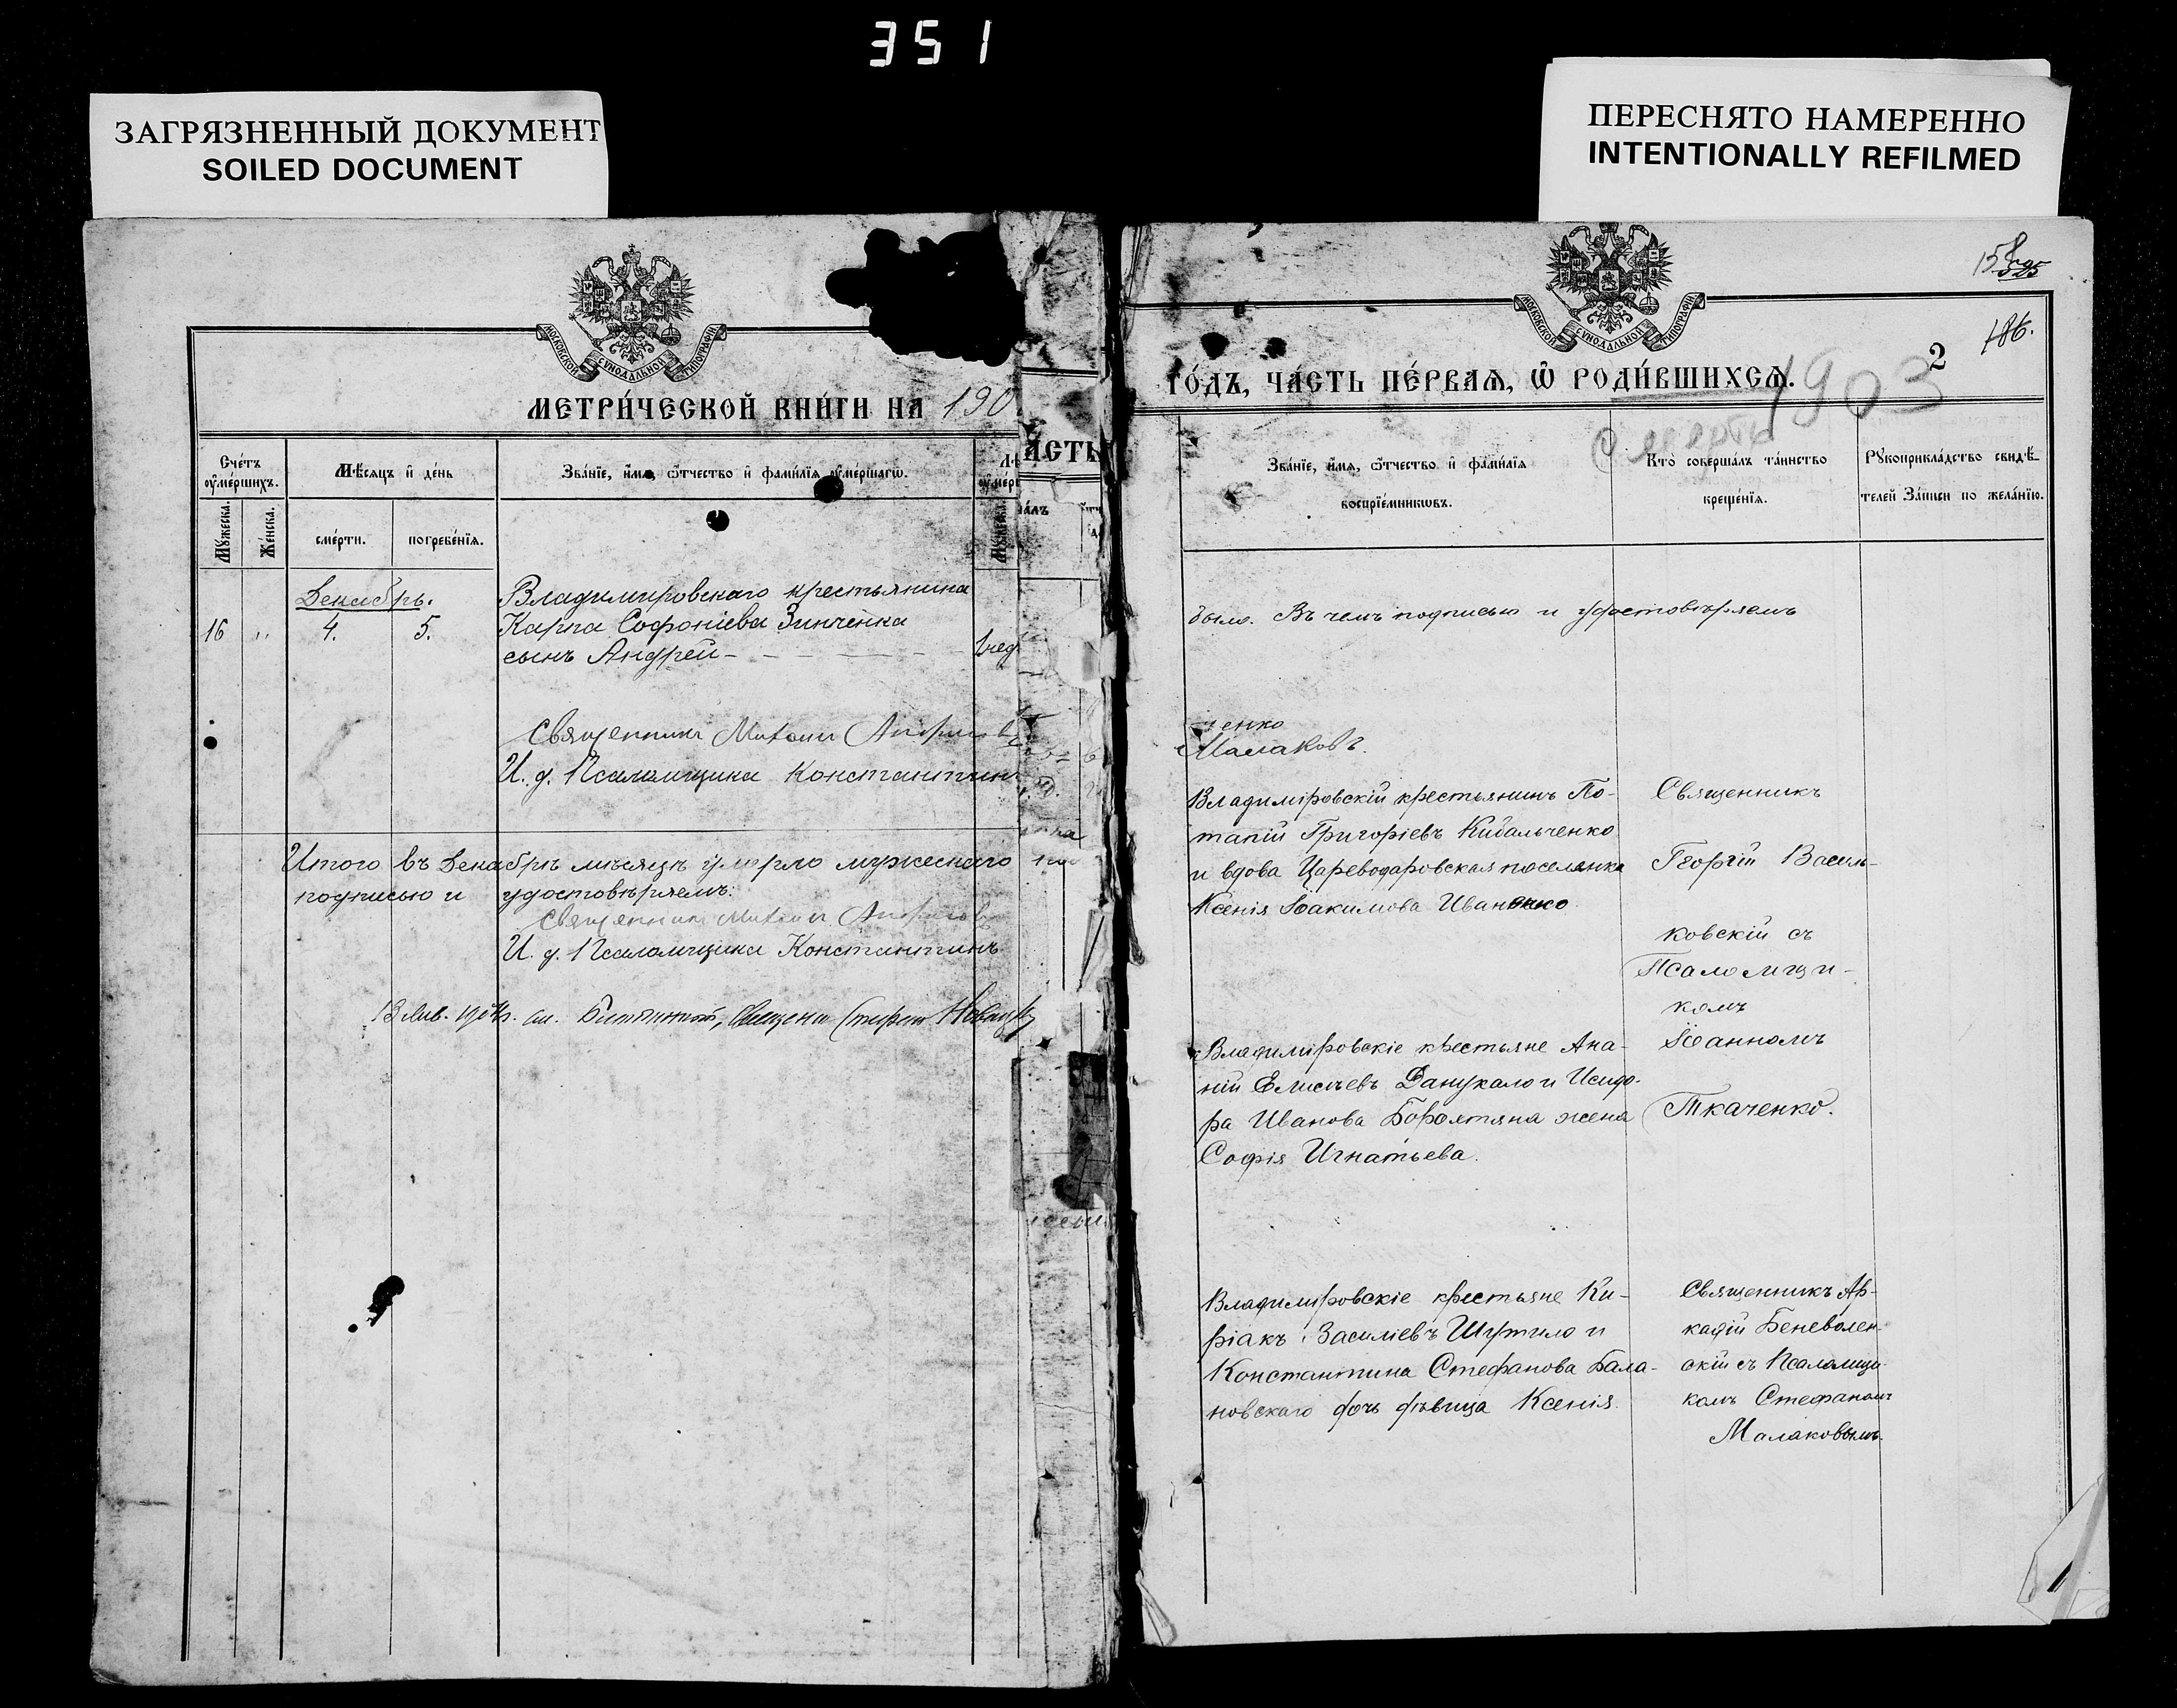 351
ЗАГРЯЗНЕННЫЙ ДОКУМЕНТ
SOILED DOCUMENT
ПЕРЕСНЯТО НАМЕРЕННО
INTENTIONALLY REFILMED
МОСКОВСКОЙ СУНОДАЛЬНОЙ ТИПОГРАФІИ
МЕТРИ́ЧЕСКОЙ КНИ́ГИ НА 190
Сче́тъ ᲂу҆ме́ршихъ.
Мѣ́сяцъ и҆ де́нь
Зва́нїе, и҆́мѧ, ѻ҆́тчество и҆ фамі́лїѧ ᲂу҆ме́ршагѡ.
Мꙋжеска.
Же́нска.
сме́рти.
погребе́нїѧ.
Мꙋжеска.
Декабрь.
16 " 4. 5.
Владимировскаго крестьянина
Карпа Софоніева Зинченка
сынъ Андрей
Священникъ Михаилъ
И. д. Псаломщика Константинъ
Итого въ Декабрѣ мѣсяцѣ умерло мужескаго
подписью и удостовѣряемъ:
Священникъ Михаилъ
И. д. Псаломщика Константинъ
МОСКОВСКОЙ СУНОДАЛЬНОЙ ТИПОГРАФІИ
186.
2
ГО́ДЪ, ЧА́СТЬ ПЕ́РВАЯ, Ѡ҆ РОДИ́ВШИХСѦ.
1903
Зва́нїе, и҆́мѧ, ѻ҆́тчество и҆ фамі́лїѧ
воспрїе́мникѡвъ.
Кто̀ соверша́лъ та́инство
креще́нїѧ.
Рꙋкоприкла́дство свидѣ́-
телей за́писи по жела́нїю.
было. Въ чемъ подписью и удостовѣряемъ
ченко
Малаковъ.
Владиміровскій крестьянинъ По-
тапій Григоріевъ Кибальченко
и вдова Цареводаровская поселянка
Ксенія Іоакимова Иваненко
Священникъ
Георгій Василь-
ковскій съ
Псаломщи-
комъ
Іоанномъ
Ткаченко.
Владиміровскіе крестьяне Ана-
ній Елисѣевъ Данукало и Исидо-
ра Иванова Бороятяна жена
Софія Игнатьева.
Владиміровскіе крестьяне Ки-
ріакъ Василіевъ Шутило и
Константина Стефанова Бала-
новскаго дочь дѣвица Ксенія.
Священникъ Ар-
кадій Беневолен-
скій съ Псаломщи-
комъ Стефаномъ
Малаковымъ.